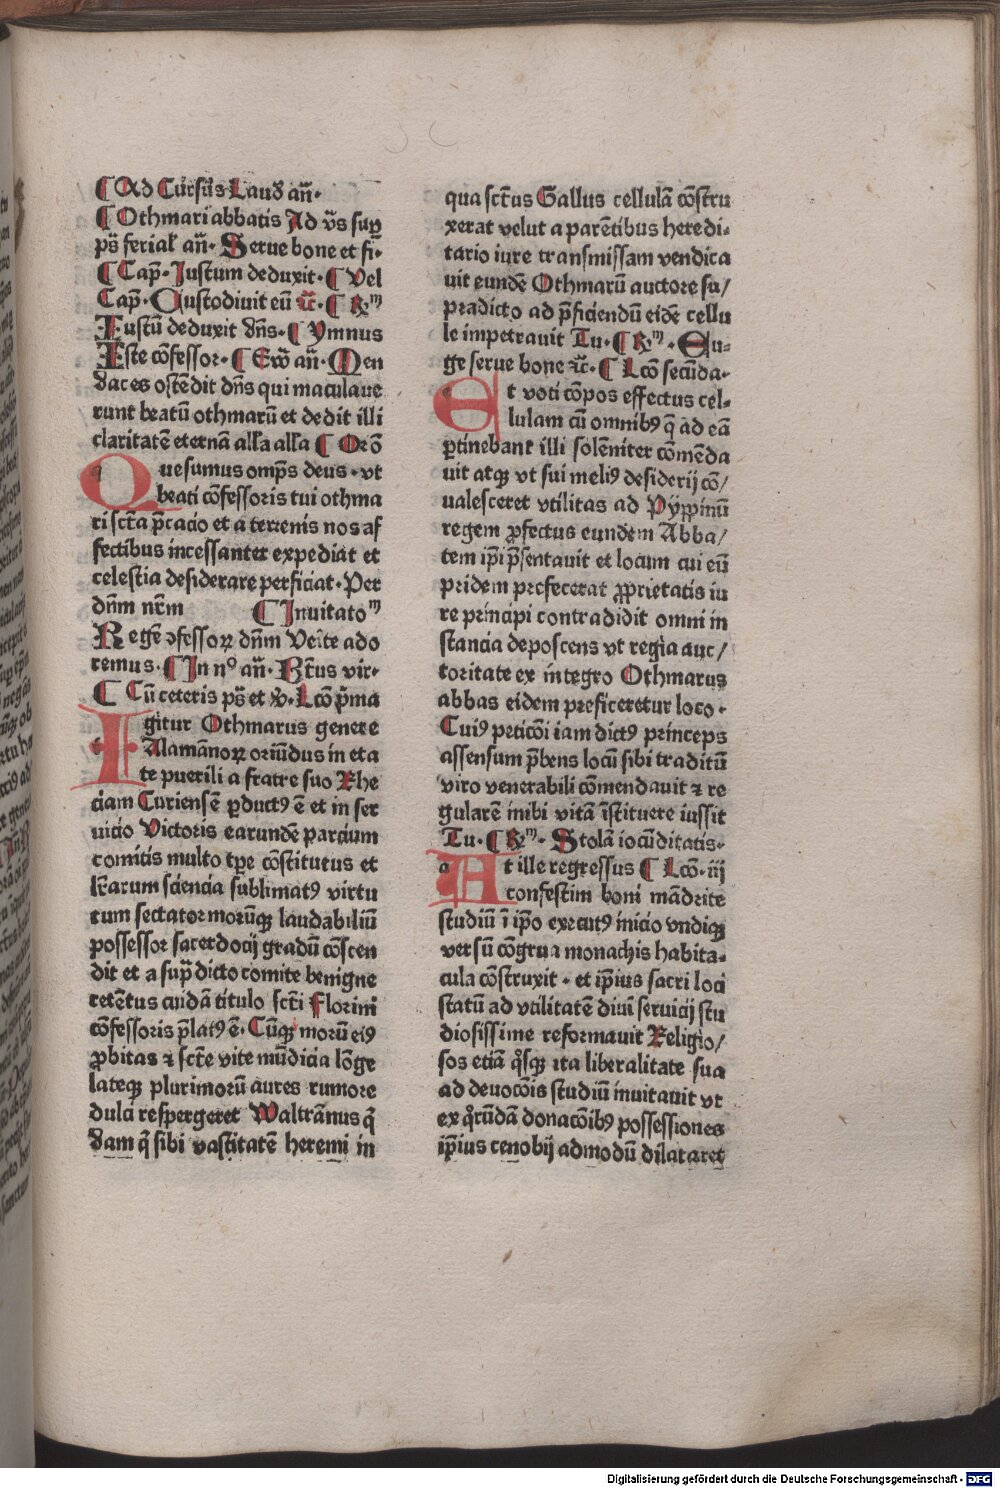 ¶ Ad Cursus Laud̕ an̄·
¶ Othmari abbatis Ad v̄s sup̱
ps̄ ferial̕ an̄· Serue bone et fi⸗
¶ Cap̄· Iustum deduxit· ¶ Vel
Cap̄· Custodiuit eū ⁊c̄· ¶ ℞ᵐ
Iustū deduxit dn̄s· ¶ Ymnus
Iste cōfessor· ¶ Ew̄ an̄· Men
daces ostēdit dn̄s qui maculaue
runt beatū othmarū et dedit illi
claritatē eternā all̕a all̕a ¶ Orō
Quesumus omp̄s deus · vt
beati cōfessoris tui othma
ri sct̄a p̄cacio et a terrenis nos af
fectibus incessanter expediat et
celestia desiderare perficiat· Per
dn̄m nr̄m ¶ Inuitatoᵐ
Regē ꝯfessoꝝ dn̄m Veīte ado
remus· ¶ In n° an̄· Bt̄us vir·
¶ Cū ceteris ps̄ et v̕· Lcō p̄ma
Igitur Othmarus genere
Alamānoꝝ oriūdus in eta
te puerili a fratre suo Rhe
ciam Curiensē ꝑductꝰ ē et in ser
uicio Victoris earundē parcium
comitis multo tp̄e cōstitutus et
lr̄arum sciencia sublimatꝰ virtu
tum sectator morūqꝫ laudabiliū
possessor sacerdocij gradū cōscen
dit et a sup̄dicto comite benigne
retētus cuidā titulo sct̄i Florini
cōfessoris p̄latꝰ ē· Cūqꝫ morū eiꝰ
ꝓbitas ⁊ sct̄e vite mūdicia lōge
lateqꝫ plurimorū aures rumore
dulci respergeret Waltrāmus q̄
dam q̄ sibi vastitatē heremi in
qua sct̄us Gallus cellulā cōstru
xerat velut a parētibus heredi⸗
tario iure transmissam vendica
uit eundē Othmarū auctore su/
pradicto ad p̄ficiendū eidē cellu
le impetrauit Tu· ¶ ℞ᵐ· Eu⸗
ge serue bone ⁊c̄· ¶ Lcō secūda·
Et voti cōpos effectus cel⸗
lulam cū omnibꝰ q̄ ad eā
ꝑtinebant illi solēniter cōmēda
uit atqꝫ vt sui meliꝰ desiderij cō/
ualesceret vtilitas ad Pyppinū
regem ꝓfectus eundem Abba/
tem ip̄i p̄sentauit et locum cui eū
pridem prefecerat ꝓprietatis iu
re principi contradidit omni in
stancia deposcens vt regia auc/
toritate ex integro Othmarus
abbas eidem preficeretur loco·
Cuiꝰ peticōi iam dictꝰ princeps
assensum p̄bens locū sibi traditū
viro venerabili cōmendauit ⁊ re
gularē inibi vitā īstituere iussit
Tu· ¶ ℞ᵐ· Stolā iocūditatis·
At ille regressus ¶ Lcō· iij
confestim boni māndrite
studiū ī ip̄o exercutꝰ inicio vndiqꝫ
versū cōgrua monachis habita⸗
cula cōstruxit · et ip̄ius sacri loci
statū ad vtilitatē diuī seruicij stu
diosissime reformauit Religio/
sos etiā qͦsqꝫ ita liberalitate sua
ad deuocōis studiū inuitauit vt
ex qͦrūdā donacōibꝰ possessiones
ip̄ius cenobij admodū dilataret
Digitalisierung gefördert durch die Deutsche Forschungsgemeinschaft - DFG